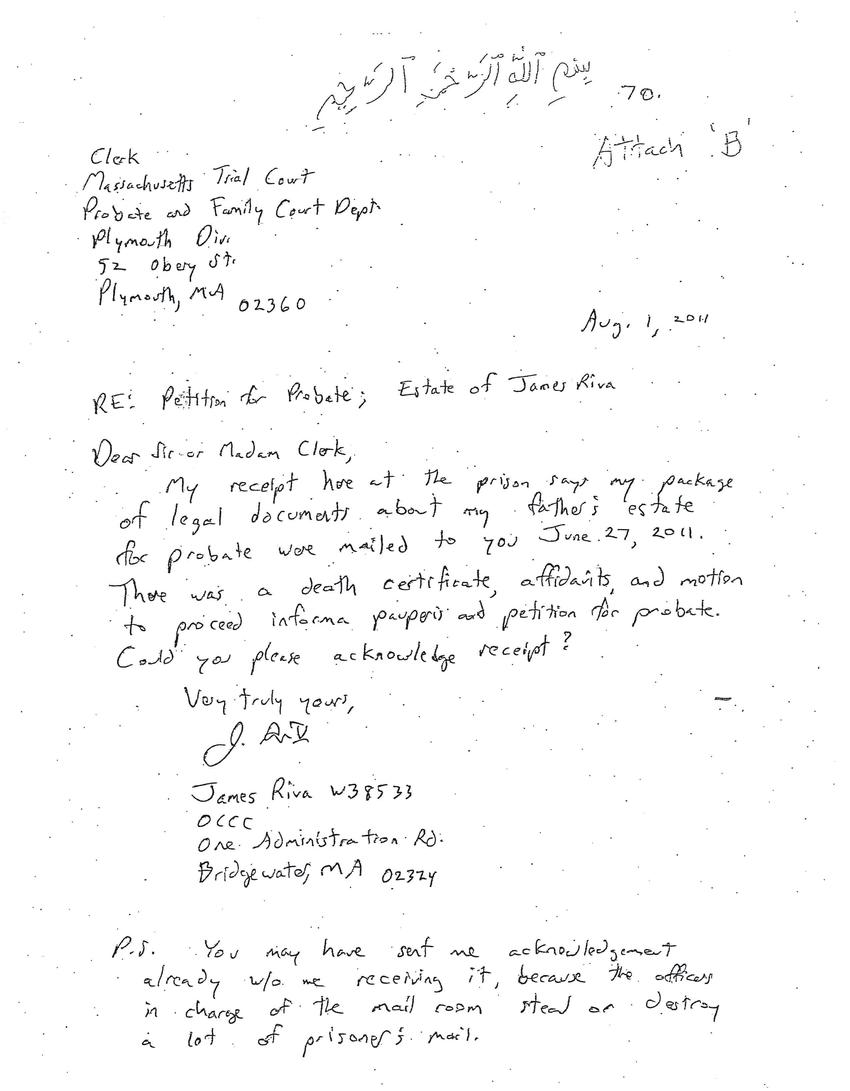 بِسْمِ ٱللَّهِ ٱلرَّحْمَٰنِ ٱلرَّحِيمِ
70.
Attach 'B'
Clerk
Massachusetts Trial Court
Probate and Family Court Dept.
Plymouth Div.
52 Obery St.
Plymouth, MA 02360
Aug. 1, 2011
RE: Petition for Probate; Estate of James Riva
Dear Sir or Madam Clerk,
My receipt here at the prison says my package
of legal documents about my father's estate
for probate were mailed to you June 27, 2011.
There was a death certificate, affidavits, and motion
to proceed informa pauperis and petition for probate.
Could you please acknowledge receipt?
Very truly yours,
James Riva W38533
OCCC
One Administration Rd.
Bridgewater, MA 02324
P.S. You may have sent me acknowledgement
already w/o me receiving it, because the officers
in charge of the mail room steal or destroy
a lot of prisoner's mail.